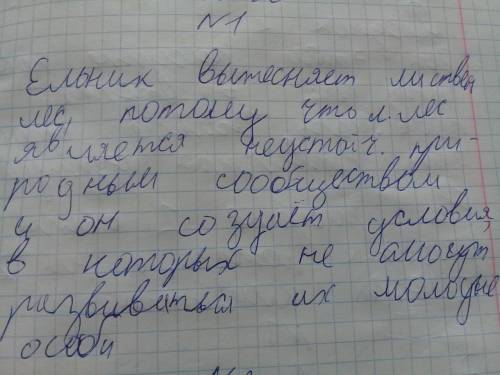 №1
Ельник вытесняет листвен
лес, потому что л. лес
является неустойч. при-
родным сообществом
и он создаёт условия,
в которых не смогут
развиваться их молодые
особи